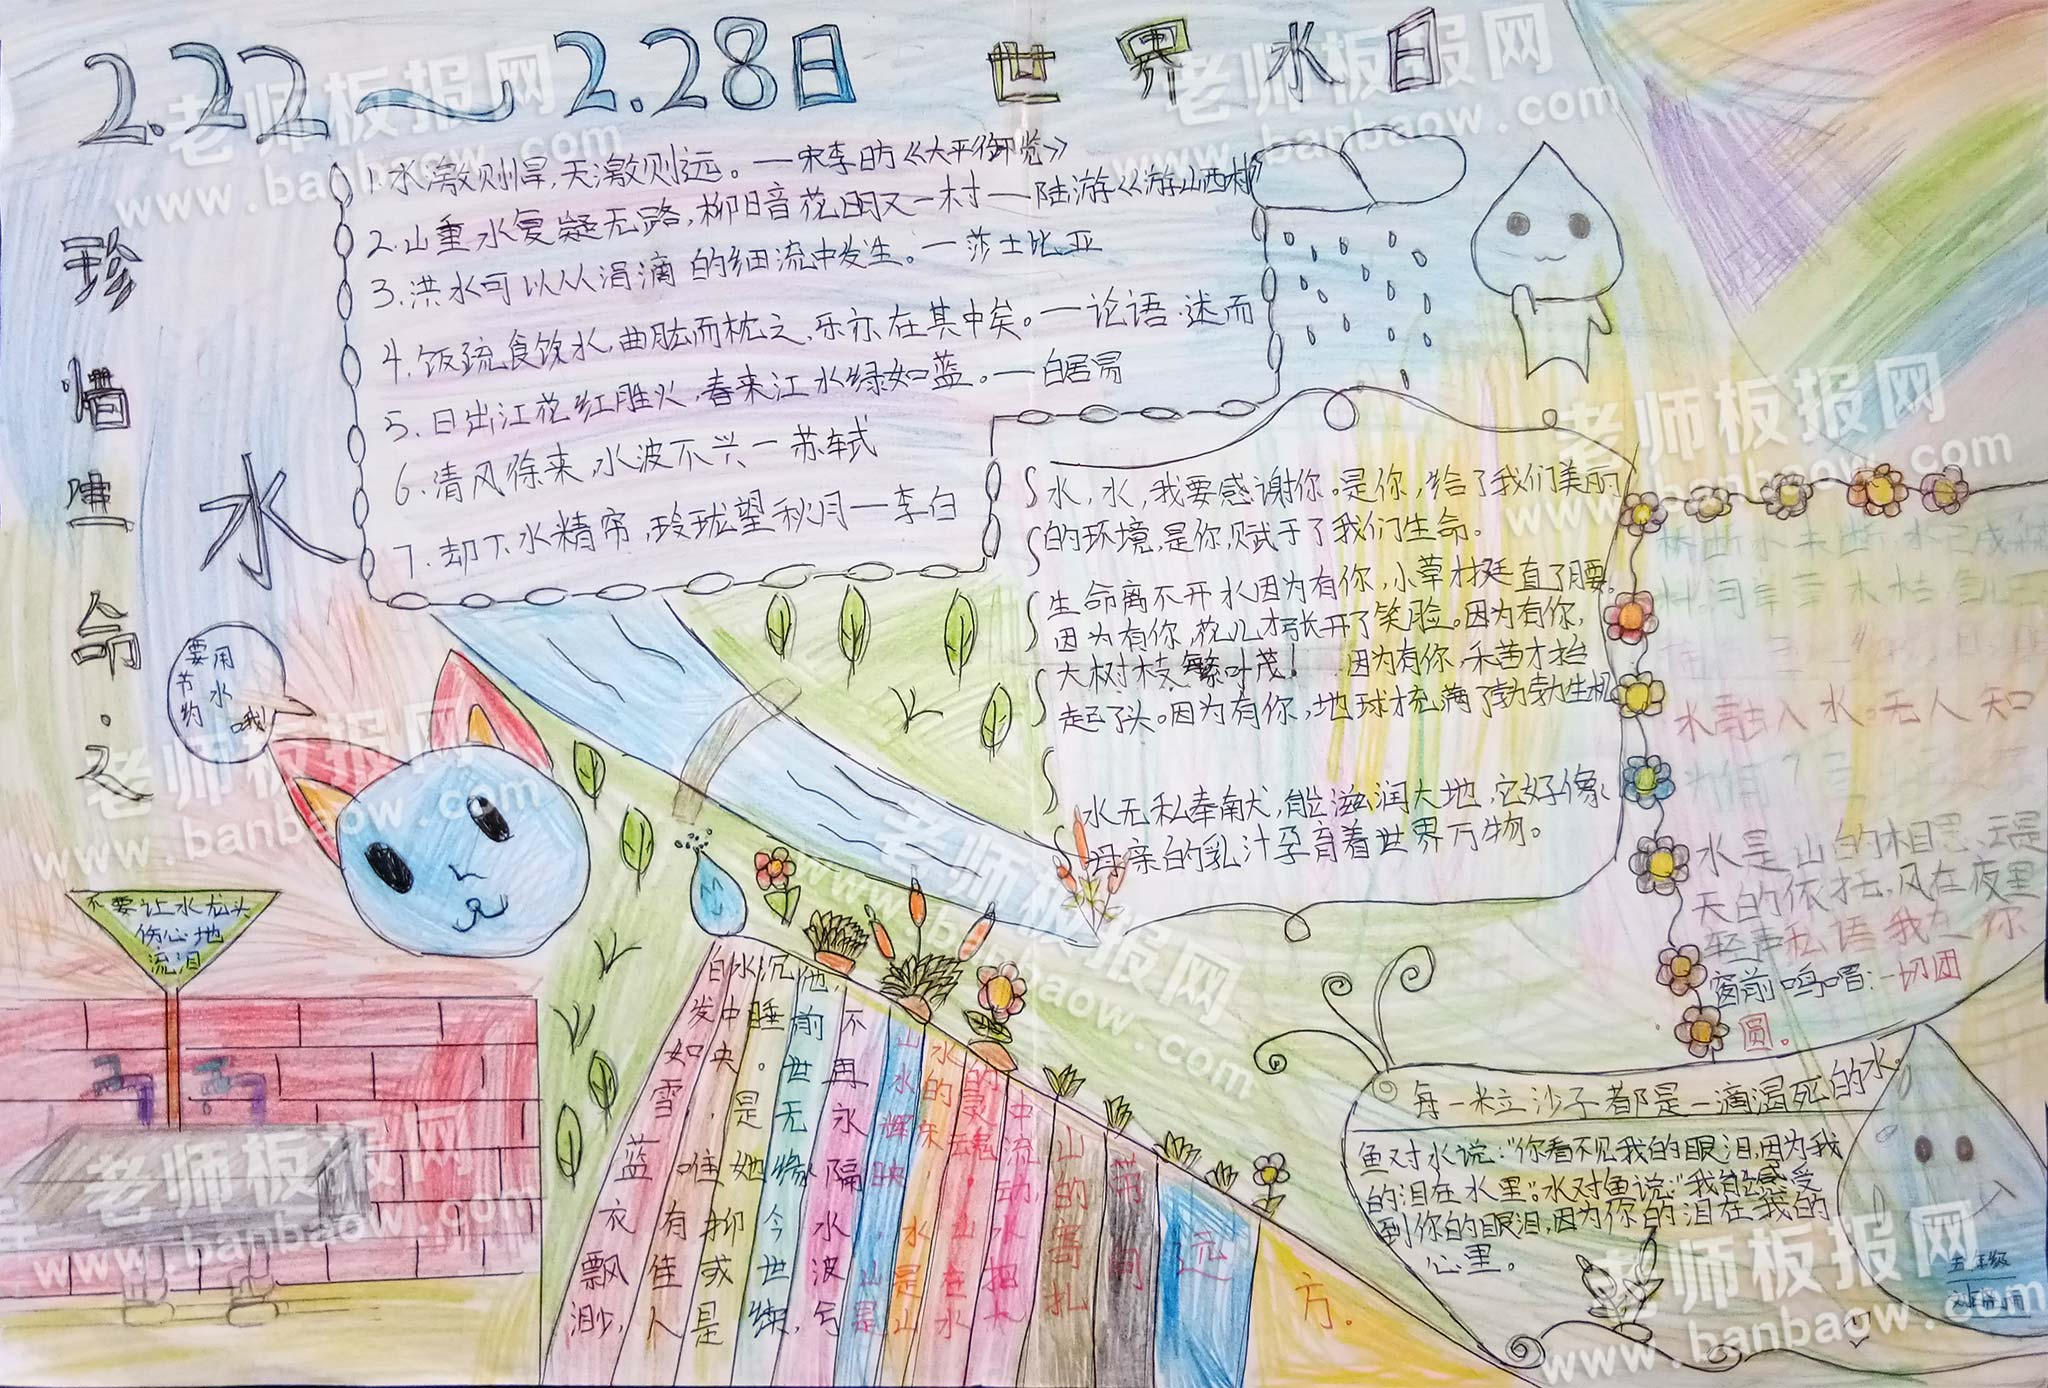 2.22～2.28日 世界水日
珍惜生命.之
水
1.水激则悍,天激则远。—宋李昉《太平御览》
2.山重水复疑无路,柳暗花明又一村——陆游《游山西村》
3.洪水可以从涓滴的细流中发生。—莎士比亚
4.饭疏食饮水,曲肱而枕之,乐亦在其中矣。—论语·述而
5.日出江花红胜火,春来江水绿如蓝。—白居易
6.清风徐来,水波不兴—苏轼
7.却下水精帘,玲珑望秋月—李白
水,水,我要感谢你。是你,给了我们美丽
的环境,是你,赋于了我们生命。
生命离不开水因为有你,小草才挺直了腰。
因为有你,花儿才张开了笑脸。因为有你,
大树枝繁叶茂! 因为有你,禾苗才抬
起了头。因为有你,地球才充满了勃勃生机
水无私奉献,能滋润大地,它好像
母亲的乳汁孕育着世界万物。
要节约
用水哦!
不要让水龙头
伤心地
流泪
水融入水。无人知
水是山的相思,云是
天的依托,风在夜里
轻声私语我在你
窗前鸣唱:一切团
圆。
每一粒沙子都是一滴渴死的水。
鱼对水说:"你看不见我的眼泪,因为我
的泪在水里。"水对鱼说:"我能感受
到你的眼泪,因为你的泪在我的
心里。
五年级
白发如雪,蓝衣飘渺,
水中央,唯有佳人
沉睡。是她抑或是
他,前世无缘今世续,
不再永隔水波兮
山水辉映,山是
水的床,水是山
的灵魂。山在水
中流动,水把大
山的寄扎
带向
远
方。